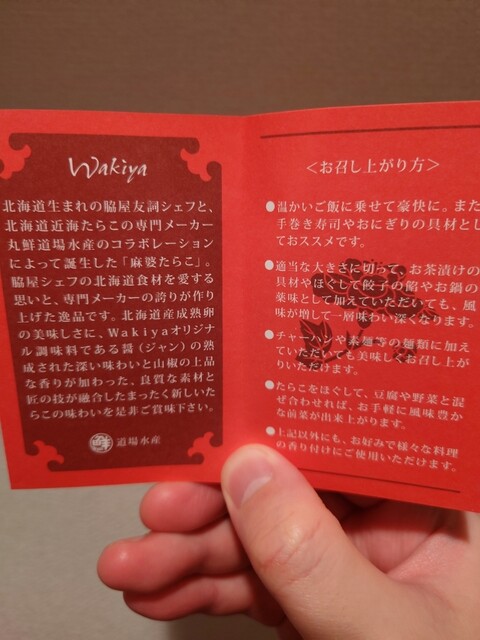 Wakiya
北海道生まれの脇屋友詞シェフと、
北海道近海たらこの専門メーカー
丸鮮道場水産のコラボレーション
によって誕生した「麻婆たらこ」。
脇屋シェフの北海道食材を愛する
思いと、専門メーカーの誇りが作り
上げた逸品です。北海道産成熟卵
の美味しさに、Wakiyaオリジナ
ル調味料である醤(ジャン)の熟
成された深い味わいと山椒の上品
な香りが加わった、良質な素材と
匠の技が融合したまったく新しいた
らこの味わいを是非ご賞味下さい。
鮮 道場水産
<お召し上がり方>
●温かいご飯に乗せて豪快に。また
手巻き寿司やおにぎりの具材とし
ておススメです。
●適当な大きさに切って、お茶漬けの
具材やほぐして餃子の餡やお鍋の
薬味として加えていただいても、風
味が増して一層味わい深くなります。
●チャーハンや素麺等の麺類に加え
ていただいても美味しくお召し上が
りいただけます。
●たらこをほぐして、豆腐や野菜と混
ぜ合わせれば、お手軽に風味豊か
な前菜が出来上がります。
●上記以外にも、お好みで様々な料理
の香り付けにご使用いただけます。